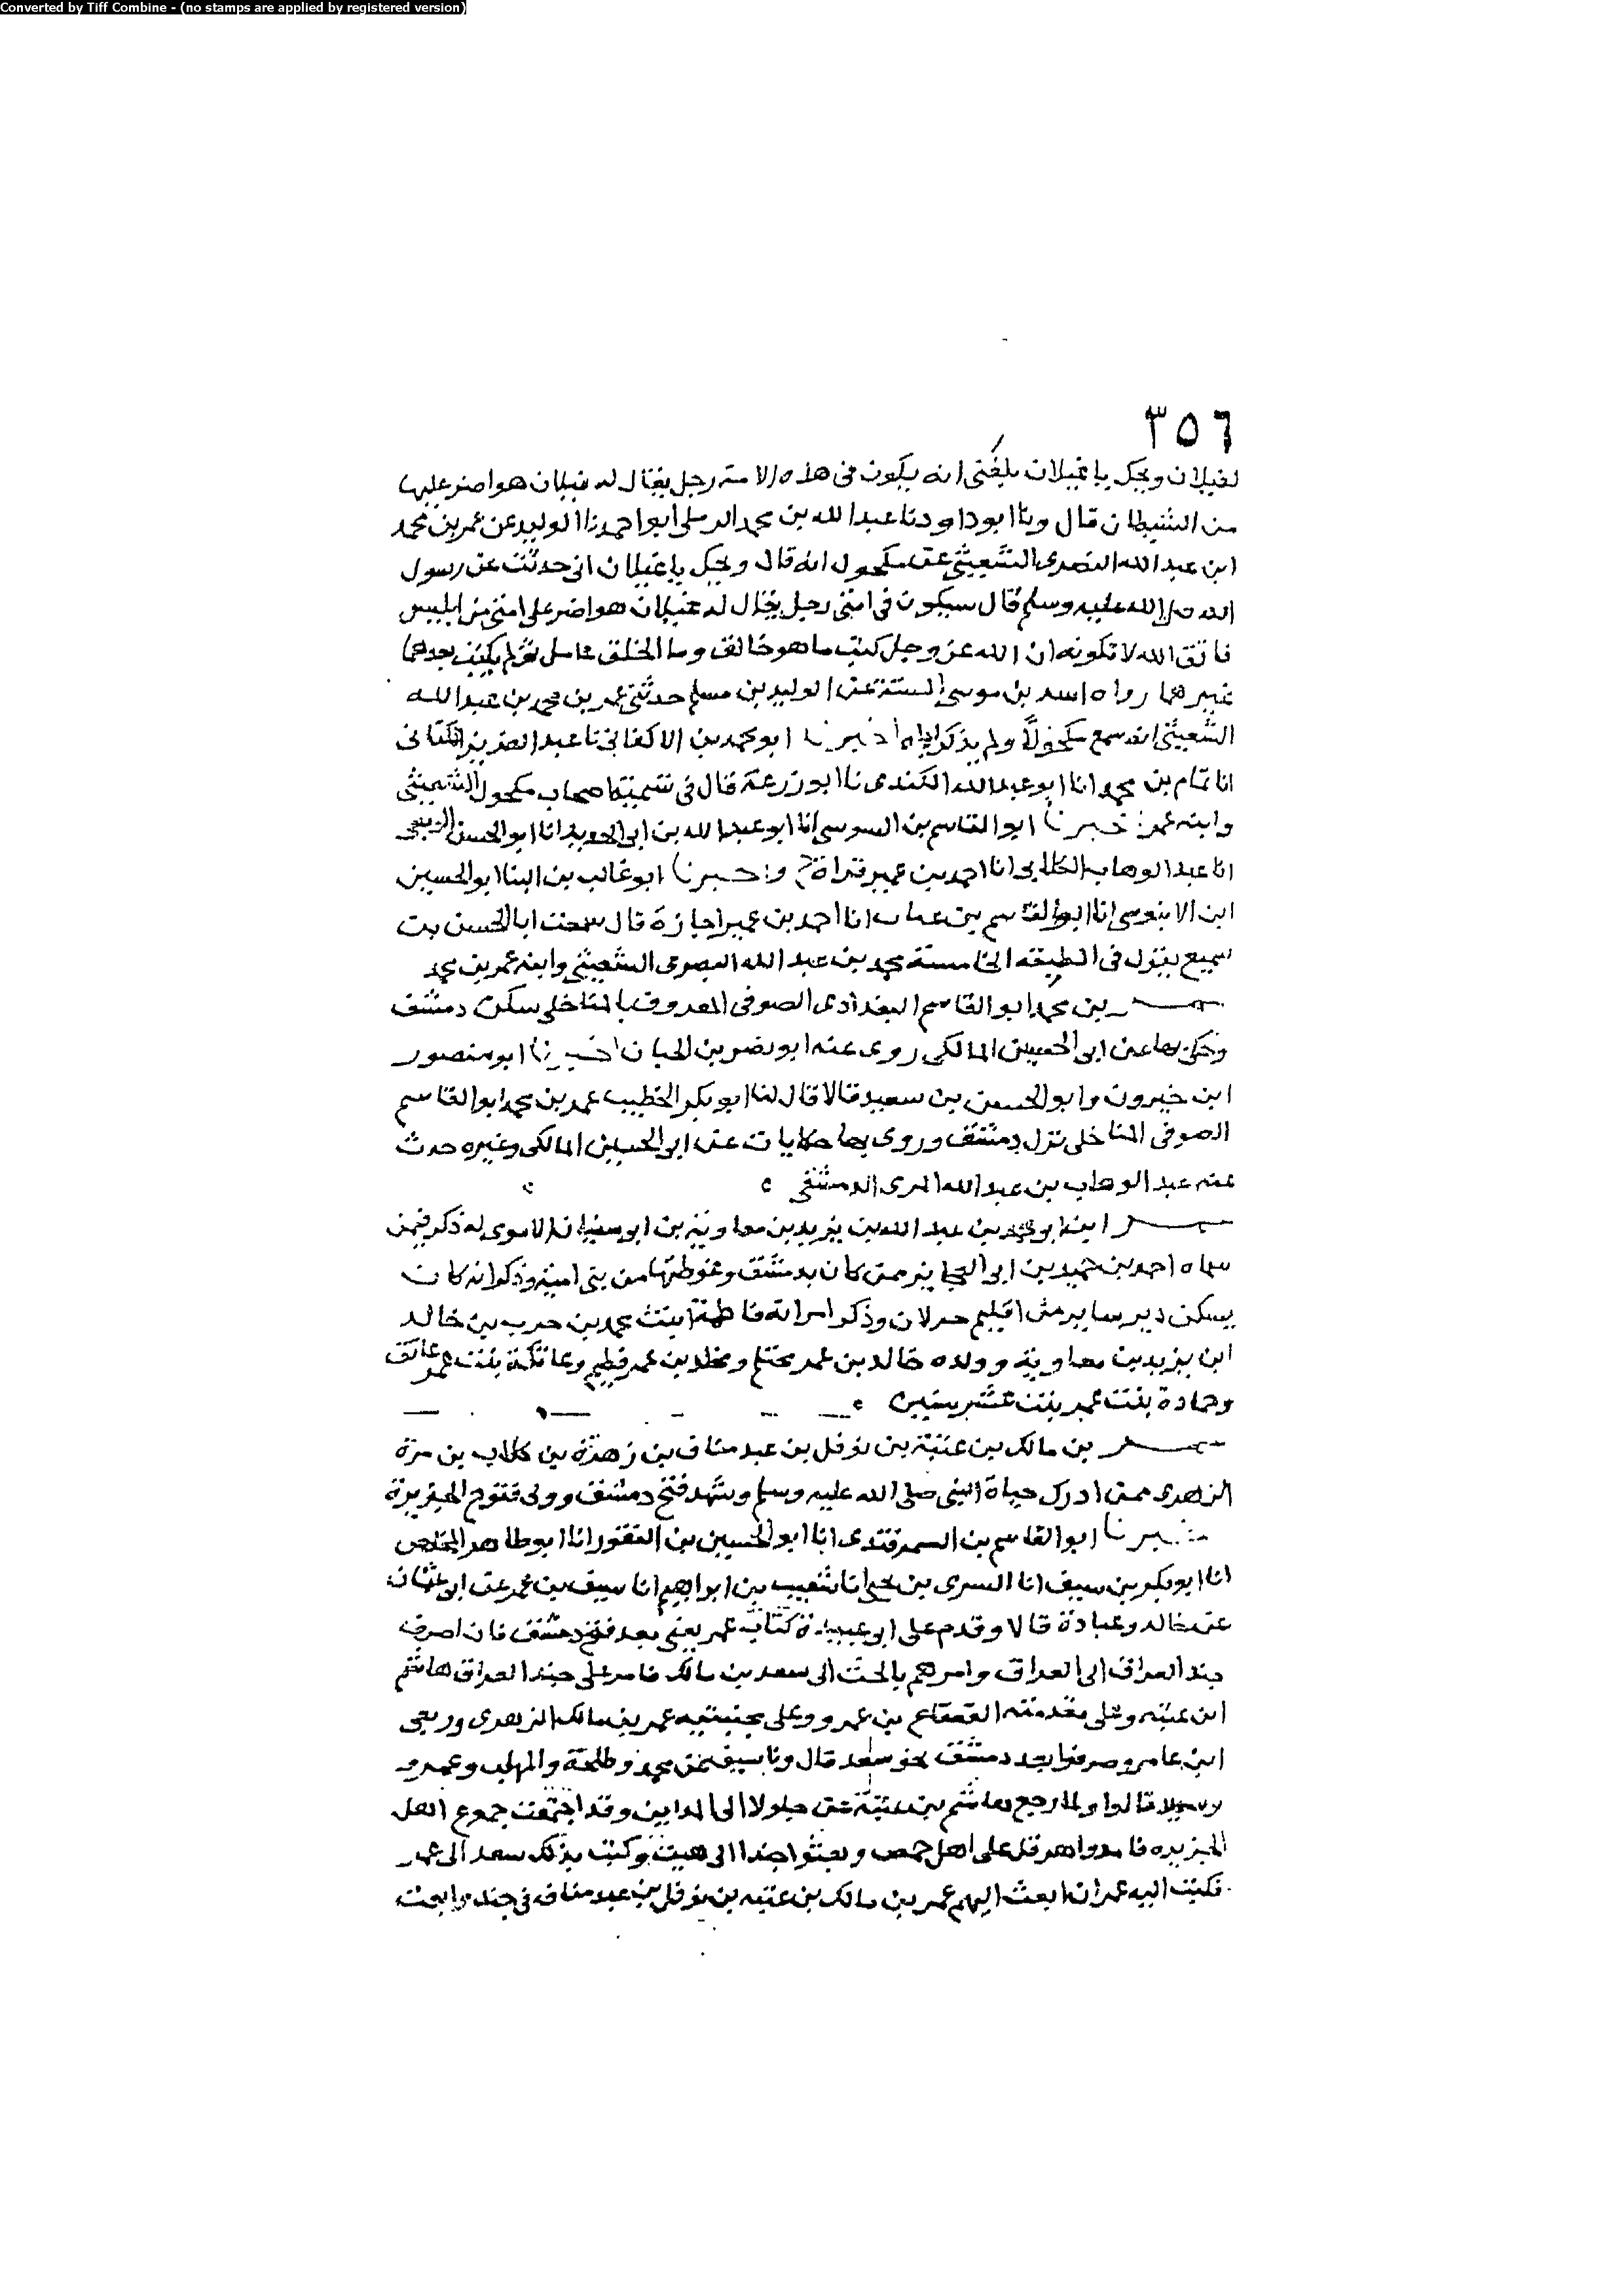 Converted by Tiff Combine - (no stamps are applied by registered version)
٣٥٦
لغيلان ويحك يا غيلان بلغني انه يكون في هذه الامة رجل يقال له غيلان هو اضر عليها
من الشيطان قال ونا ابو داود نا عبد الله بن محمد الرملي ابو احمد نا الوليد عن عمر بن محمد
ابن عبد الله النصرى الشعيثي عن مكحول انه قال ويحك يا غيلان اني حدثت عن رسول
الله صلى الله عليه وسلم قال سيكون في امتي رجل يقال له غيلان هو اضر على امتي من ابليس
فاتق الله لا تكونه ان الله عز وجل كتب ما هو خالق وما الخلق عامل ثم لم يكتب بعدهما
غيرهما رواه اسد بن موسى السنة عن الوليد بن مسلم حدثني عمر بن محمد بن عبد الله
الشعيثي انه سمع مكحولا ولم يذكر اباه اخبرنا ابو محمد بن الاكفاني نا عبد العزيز الكتاني
انا تمام بن محمد انا ابو عبد الله الكندى نا ابو زرعة قال في تسمية اصحاب مكحول الشعيثي
وابنه عمر اخبرنا ابو القاسم بن السوسي انا ابو عبد الله بن ابي الحديد انا ابو الحسن الربعي
انا عبد الوهاب الكلابي انا احمد بن عمير قراة ح واخبرنا ابو غالب بن البنا ابو الحسين
ابن الابنوسي انا ابو القاسم بن عتاب انا احمد بن عمير اجازة قال سمعت ابا الحسن بن
سميع يقول في الطبقة الخامسة محمد بن عبد الله النصرى الشعيثي وابنه عمر بن محمد
عمر بن محمد ابو القاسم البغدادى الصوفي المعروف بالمناخلي سكن دمشق
وحكى بها عن ابي الحسين المالكي روى عنه ابو نصر بن الجبان اخبرنا ابو منصور
ابن خيرون وابو الحسن بن سعيد قالا قال لنا ابو بكر الخطيب عمر بن محمد ابو القاسم
الصوفي المناخلي نزل دمشق وروى بها حكايات عن ابي الحسين المالكي وغيره حدث
عنه عبد الوهاب بن عبد الله المرى الدمشقي
عمر ابن ابو محمد بن عبد الله بن يزيد بن معاوية بن ابو سفيان الاموى له ذكر فيمن
سماه احمد بن حميد بن ابو العجايز ممن كان بدمشق وغوطتها من بني امية وذكر انه كان
يسكن دير سابر من اقليم خولان وذكر امراته فاطمة ابنت محمد بن حرب بن خالد
ابن يزيد بن معاوية وولده خالد بن عمر محتلم ومخلد بن عمر فطيم وعاتكة بنت عمر عاتق
وحمادة بنت عمر بنت عشر سنين
عمر بن مالك بن عتبة بن نوفل بن عبد مناف بن زهرة بن كلاب بن مرة
الزهرى ممن ادرك حياة النبي صلى الله عليه وسلم وشهد فتح دمشق وولى فتوح الجزيرة
اخبرنا ابو القاسم بن السمرقندى انا ابو الحسين بن النقور انا ابو طاهر المخلص
انا ابو بكر بن سيف انا السري بن يحيى انا شعيب بن ابراهيم انا سيف بن عمر عن ابي عثمان
عن خالد وعبادة قالا وقدم على ابو عبيدة كتاب عمر يعني بعد فتح دمشق فان اصرف
جند العراق الى العراق وامرهم بالحث الى سعد بن مالك فامر على جند العراق هاشم
ابن عتبه وعلى مقدمته القعقاع بن عمرو وعلى مجنبتيه عمر بن مالك الزهرى وربعي
ابن عامر وصرفوا بعد دمشق نحو سعد قال ونا سيف عن محمد وطلحة والمهلب وعمرو
وسعيد قالوا ولما رجع هاشم بن عتبة عن جلولا الى المداين وقد اجتمعت جموع اهل
الجزيره فامدوا هرقل على اهل حمص وبعثوا جندا الى هيت وكتب بذلك سعد الى عمر
فكتب اليه عمر ان ابعث اليهم عمر بن مالك بن عتبه بن نوفل بن عبد مناف في جند وابعث